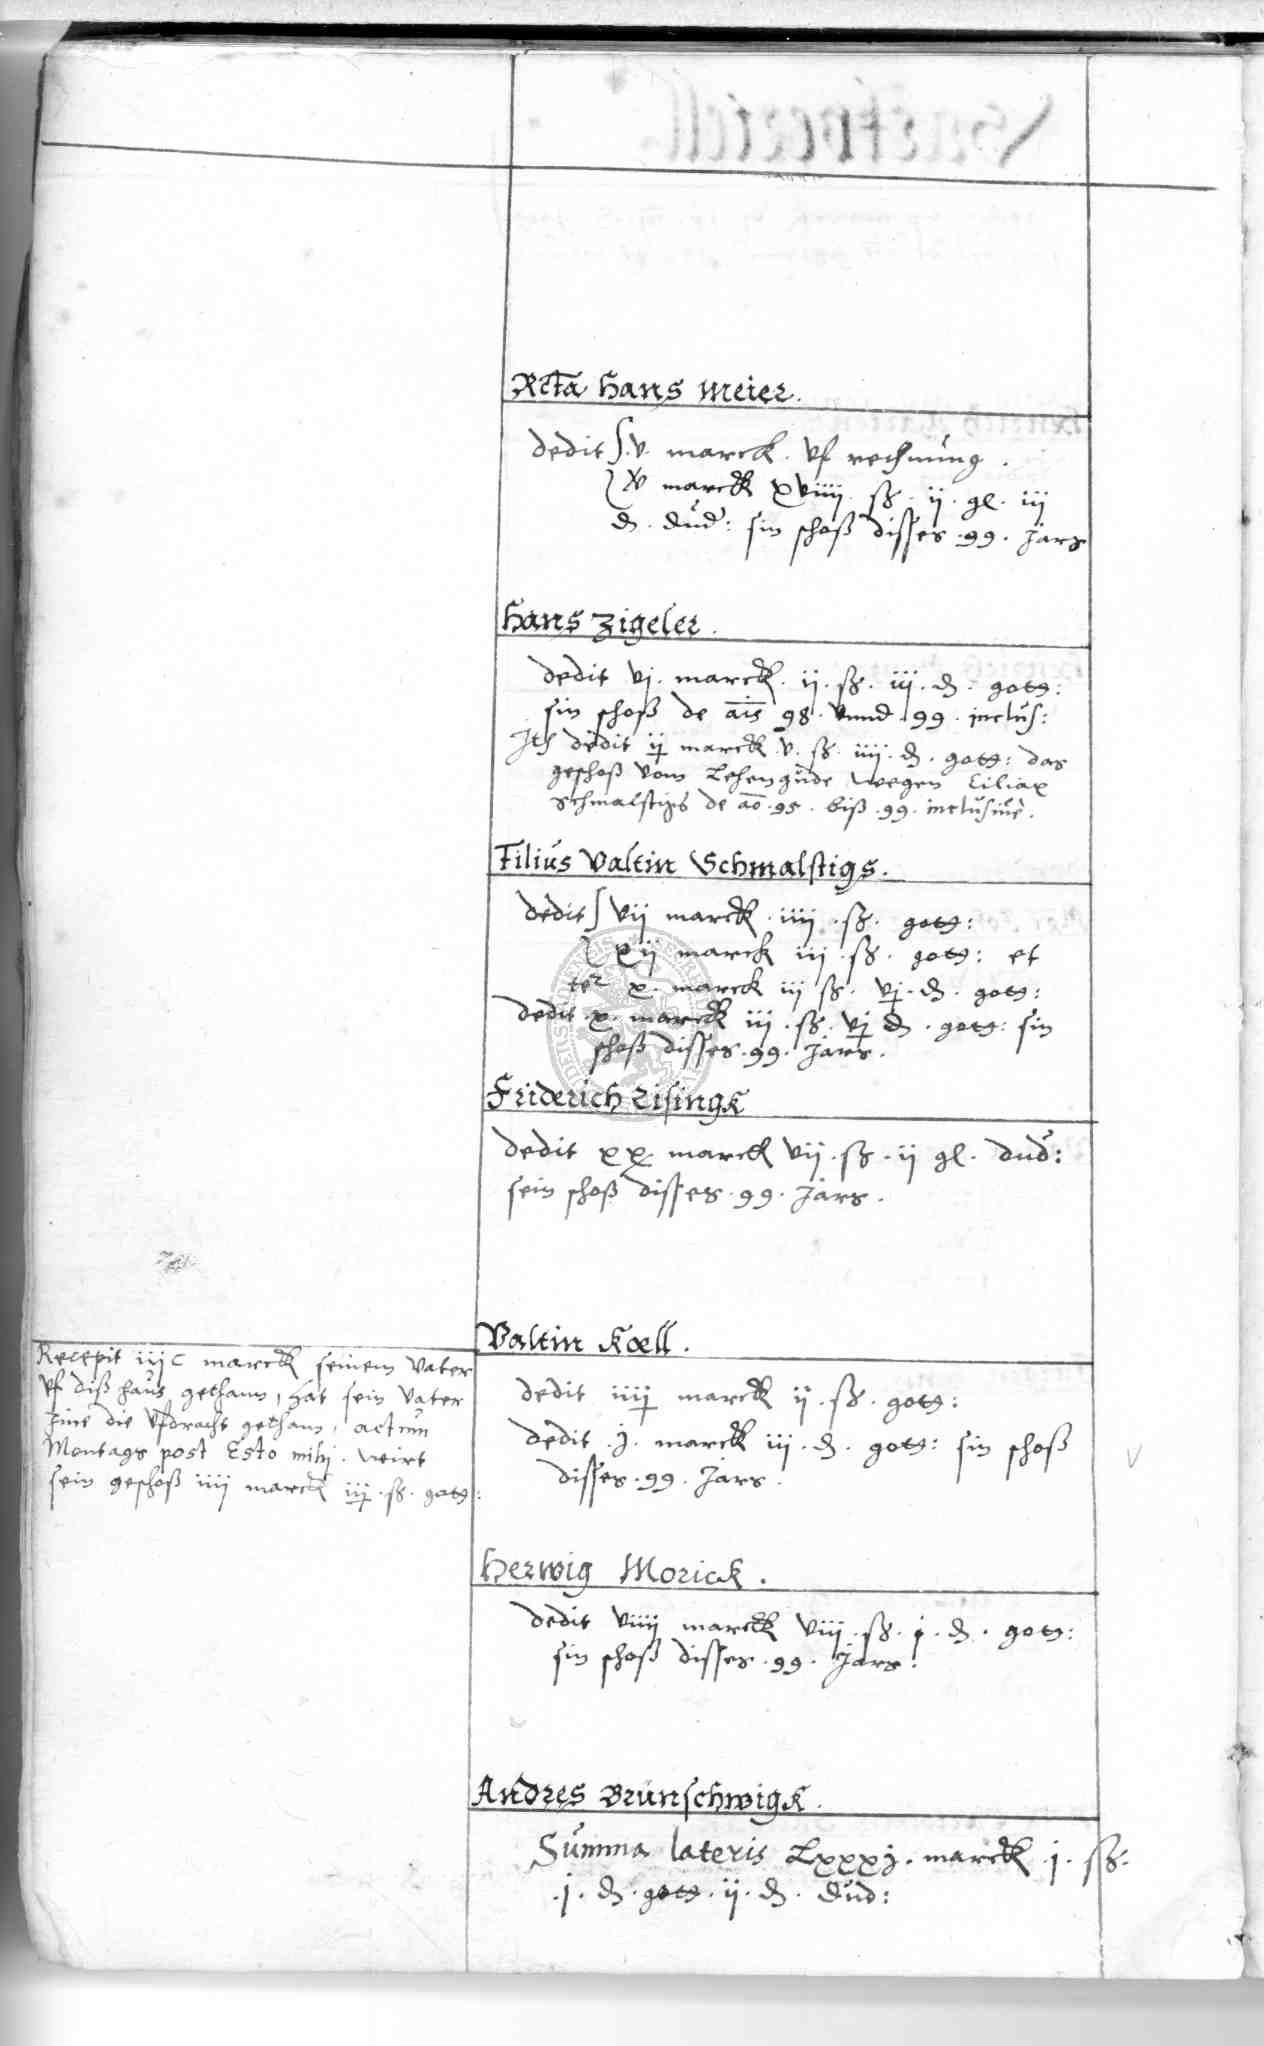 Rcta Hans Meier.
dedit v. marck. vf rechnung.
xv marck xviiii. ß. ii. gl. iii
d. dud: sin schoß disses .99. Jars
Hans Zigeler.
dedit vj. marck. ii. ß. iii. d. gotg:
sin schoß de ais 98. vnnd 99. inclus:
Ite dedit ij marck v. ß. iiii. d. gotg: das
geschoß vom Lehengude wegen Ciliax
Schmalstigs de ao .95. biß .99. inclusiue.
Filius Valtin Schmalstigs.
dedit vii marck. iiii. ß. gotg:
xij marck iii. ß. gotg: et
ter x. marck iii ß. vj. d. gotg:
dedit. x. marck iii. ß. vj d. gotg: sin
schoß disses. 99. Jars.
Friderich Zisingk
dedit xx. marck vii. ß. ii gl. dud:
sein schoß disses. 99. Jars.
Valtin Koell.
Recepit iijC marck seinem Vater
vf diß haus gethann, hat sein Vater
Jme die vfdracht gethann, actum
Montags post Esto mihj. wirt
sein geschoß iiii marck iij. ß. gotg:
dedit iiij marck ii. ß. gotg:
dedit .j. marck iii. d. gotg: sin schoß
disses. 99. Jars.
Herwig Morick.
dedit viiii marck viii. ß. j. d. gotg:
sin schoß disses. 99. Jars.
Andres Brunschwigk.
Summa lateris Lxxxj. marck .j. ß.
.j. d. gotg. ii. d. dud: